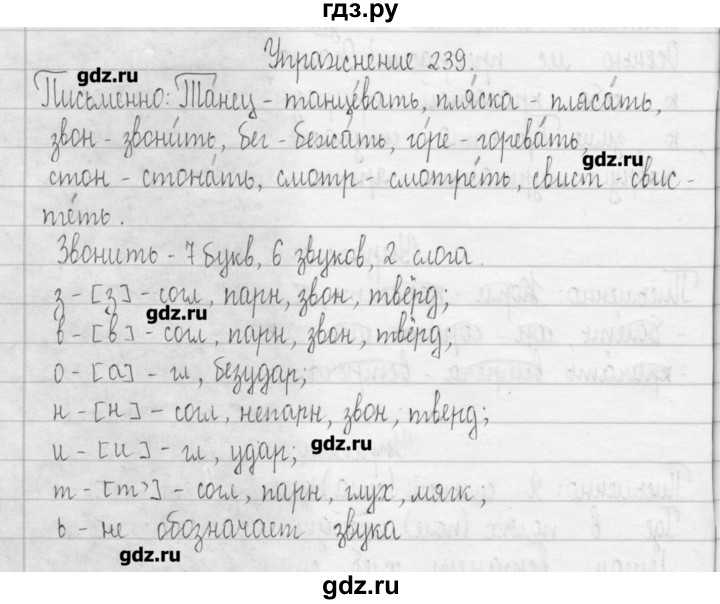 гдз.ру
Упражнение 239.
gdz.ru
Письменно: Танец - танцевать, пляска - плясать,
звон - звони́ть, бег - бежа́ть, го́ре - горева́ть,
gdz.ru
стон - стона́ть, смотр - смотре́ть, свист - свис-
те́ть.
Звонить - 7 букв, 6 звуков, 2 слога.
з - [з] - согл, парн, звон, твёрд;
gdz.ru
в - [в] - согл, парн, звон, твёрд;
о - [а] - гл, безудар;
н - [н] - согл, непарн, звон, тверд;
и - [и] - гл, удар;
gdz.ru
т - [т'] - согл, парн, глух, мягк,
ь - не обозначает звука
gdz.ru
gdz.ru